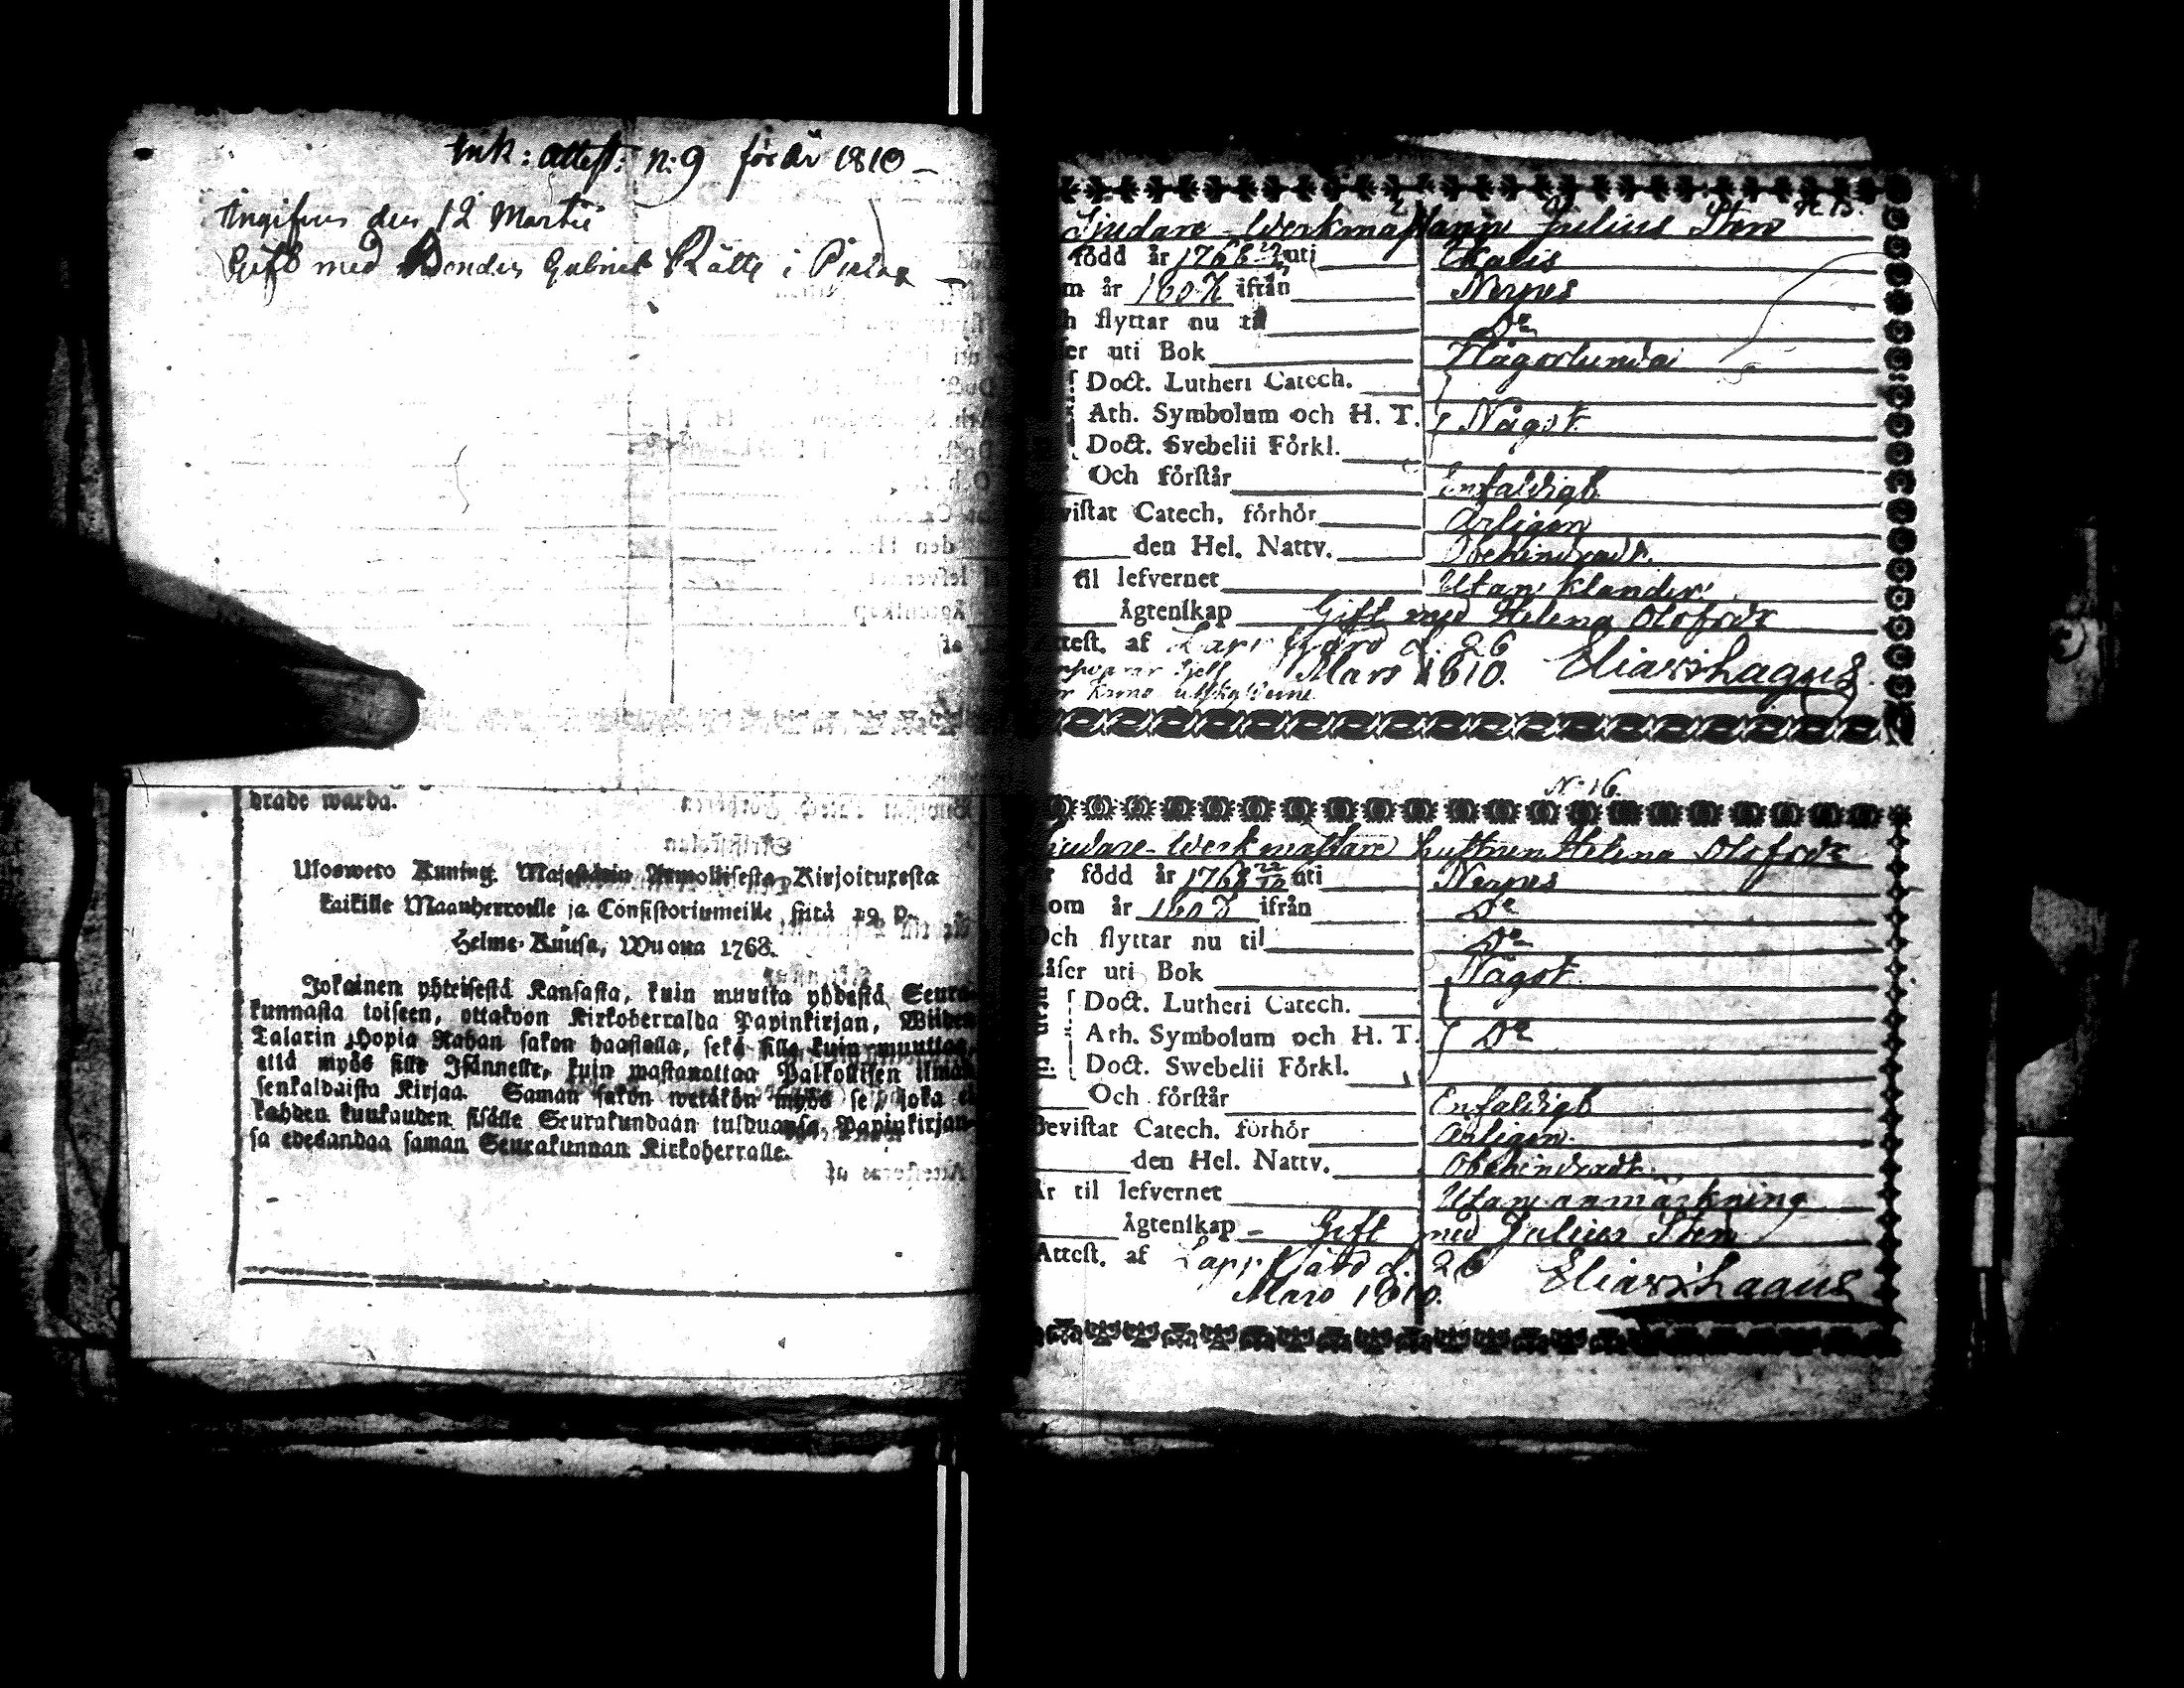 Ink: attest: n:9 för år 1810 –
Angifven den 12 Martii
Gift med Bonden Gabriel Rätti i
drade warda.
Ulosweto Kuning. Majestätin Armollisesta Kirjoituxesta
kaikille Maanherroille ja Consistoriumeille, siitä 29 p.
Helme-Kuusa, Wuona 1768.
Jokainen yhteisestä Kansasta, kuin muutta yhdestä Seura-
kunnasta toiseen, ottakoon Kirkoherralda Papinkirjan, Wiiden
Talarin Hopia Rahan sakon haastolla, sekä sille kuin muuttaa,
että myös sille Isännelle, kuin wastanottaa Palkollisen ilman
senkaldaista Kirjaa. Saman sakon wetäkön myös se, joka ei
kahden kuukauden sisälle Seurakundaan tulduansa, Papinkirjan-
sa edesandaa saman Seurakunnan Kirkoherralle.
N:15.
Sjudare-Werkmästaren Julius Sten
född år 1766 uti Ekenäs
m år 1807 ifrån Nerpes
h flyttar nu til D:o
er uti Bok Någorlunda
Doct. Lutheri Catech.
Ath. Symbolum och H. T. Något
Doct. Svebelii Förkl.
Och förstår Enfaldigt
vistat Catech. förhör Årligen
den Hel. Nattv. Obehindradt.
til lefvernet Utan klander.
Ägtenskap Gift med Helena Olofsdr
ttest. af Lappfjärd d. 26
Mars 1810. Elias Lagus
N:16.
Sjudare-Werkmästare hustrun Helena Olofsdr
född år 1768 22/12 uti Nerpes
om år 1807 ifrån D:o
Och flyttar nu til D:o
Läser uti Bok Något
Doct. Lutheri Catech.
Ath. Symbolum och H. T. D:o
Doct. Swebelii Förkl.
Och förstår Enfaldigt
Bevistat Catech. förhör Årligen.
den Hel. Nattv. Obehindradt.
Är til lefvernet Utan anmärkning
Ägtenskap – Gift med Julius Sten
Attest. af Lappfjärd d. 26
Mars 1810. Elias Lagus